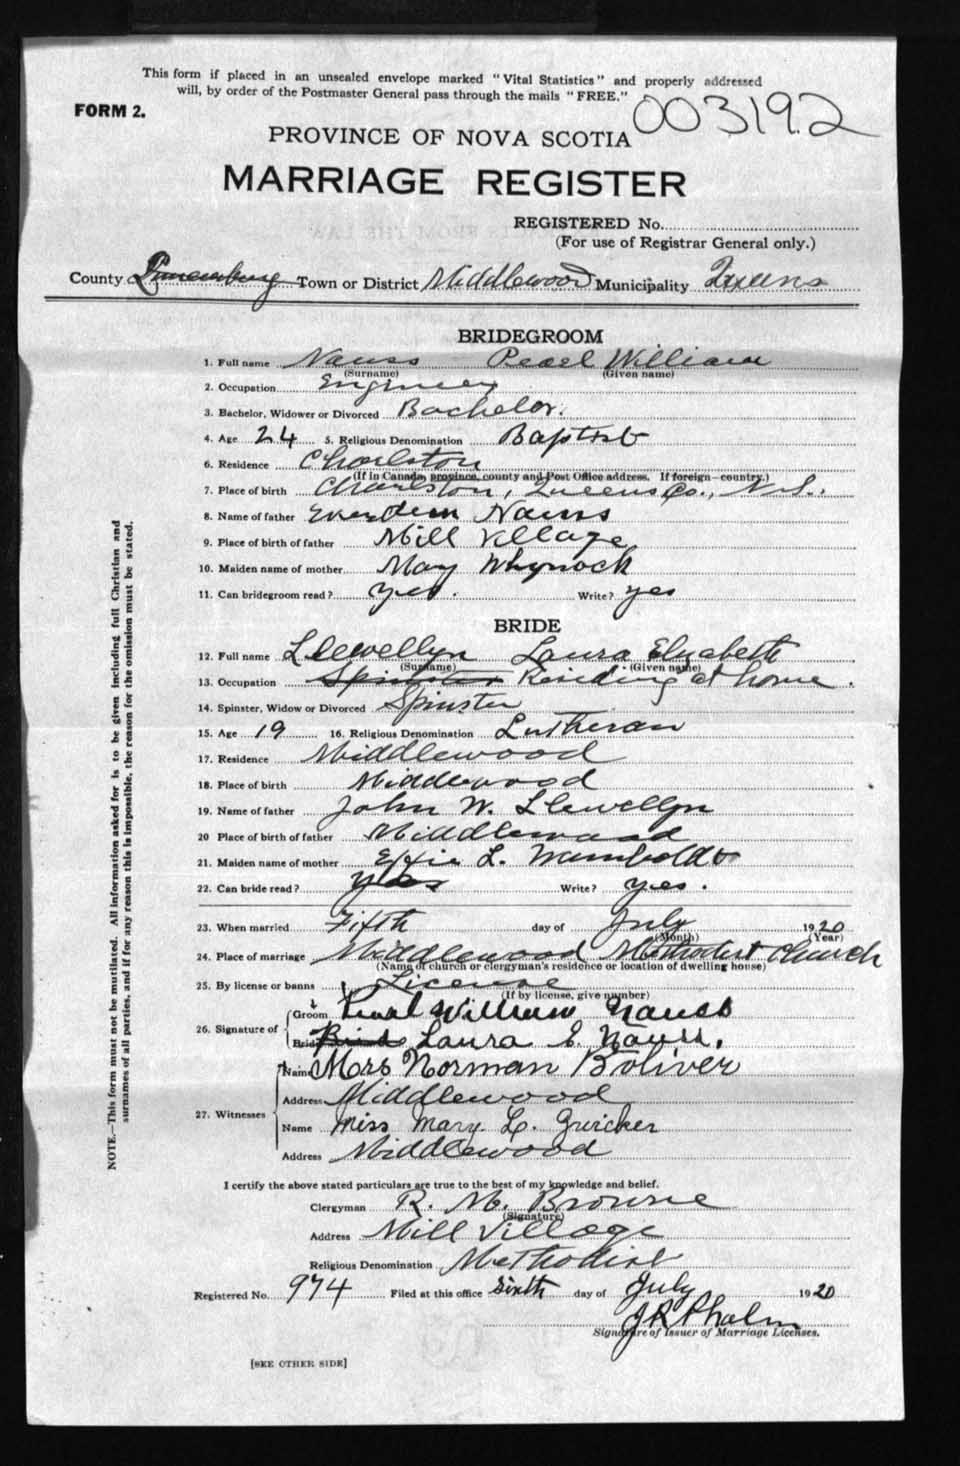 This form if placed in an unsealed envelope marked "Vital Statistics" and properly addressed
will, by order of the Postmaster General pass through the mails "FREE."
FORM 2.
003192
PROVINCE OF NOVA SCOTIA
MARRIAGE REGISTER
REGISTERED No.
(For use of Registrar General only.)
County Lunenburg Town or District Middlewood Municipality Queens
BRIDEGROOM
1. Full name Nauss Pearl William
(Surname) (Given name)
2. Occupation Engineer
3. Bachelor, Widower or Divorced Bachelor.
4. Age 24 5. Religious Denomination Baptist
6. Residence Charlston
(If in Canada, province, county and Post Office address. If foreign—country.)
7. Place of birth Charlston, Queens Co., N.S.
8. Name of father Nauss
9. Place of birth of father Mill Village
10. Maiden name of mother May Whynock
11. Can bridegroom read? yes. Write? yes
BRIDE
12. Full name Llewellyn Laura Elizabeth
(Surname) (Given name)
13. Occupation Spinster Residing at home.
14. Spinster, Widow or Divorced Spinster
15. Age 19 16. Religious Denomination Lutheran
17. Residence Middlewood
18. Place of birth Middlewood
19. Name of father John W. Llewellyn
20 Place of birth of father Middlewood
21. Maiden name of mother Effie L. Wamboldt
22. Can bride read? yes Write? yes.
23. When married Fifth day of July 1920
(Month) (Year)
24. Place of marriage Middlewood Methodist Church
(Name of church or clergyman's residence or location of dwelling house)
25. By license or banns License
(If by license, give number)
26. Signature of
Groom Pearl William Nauss
Bride Laura E. Nauss.
27. Witnesses
Name Mrs Norman Boliver
Address Middlewood
Name Miss Mary L.
Address Middlewood
I certify the above stated particulars are true to the best of my knowledge and belief.
Clergyman R. M. Browne
(Signature)
Address Mill Village
Religious Denomination Methodist
Registered No. 974 Filed at this office Sixth day of July 1920
Signature of Issuer of Marriage Licenses.
[SEE OTHER SIDE]
NOTE.—This form must not be mutilated. All information asked for is to be given including full Christian and
surnames of all parties, and if for any reason this is impossible, the reason for the omission must be stated.